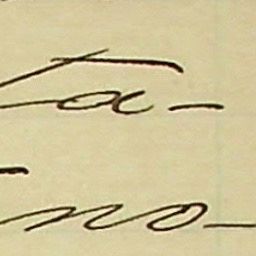 ta-
no-